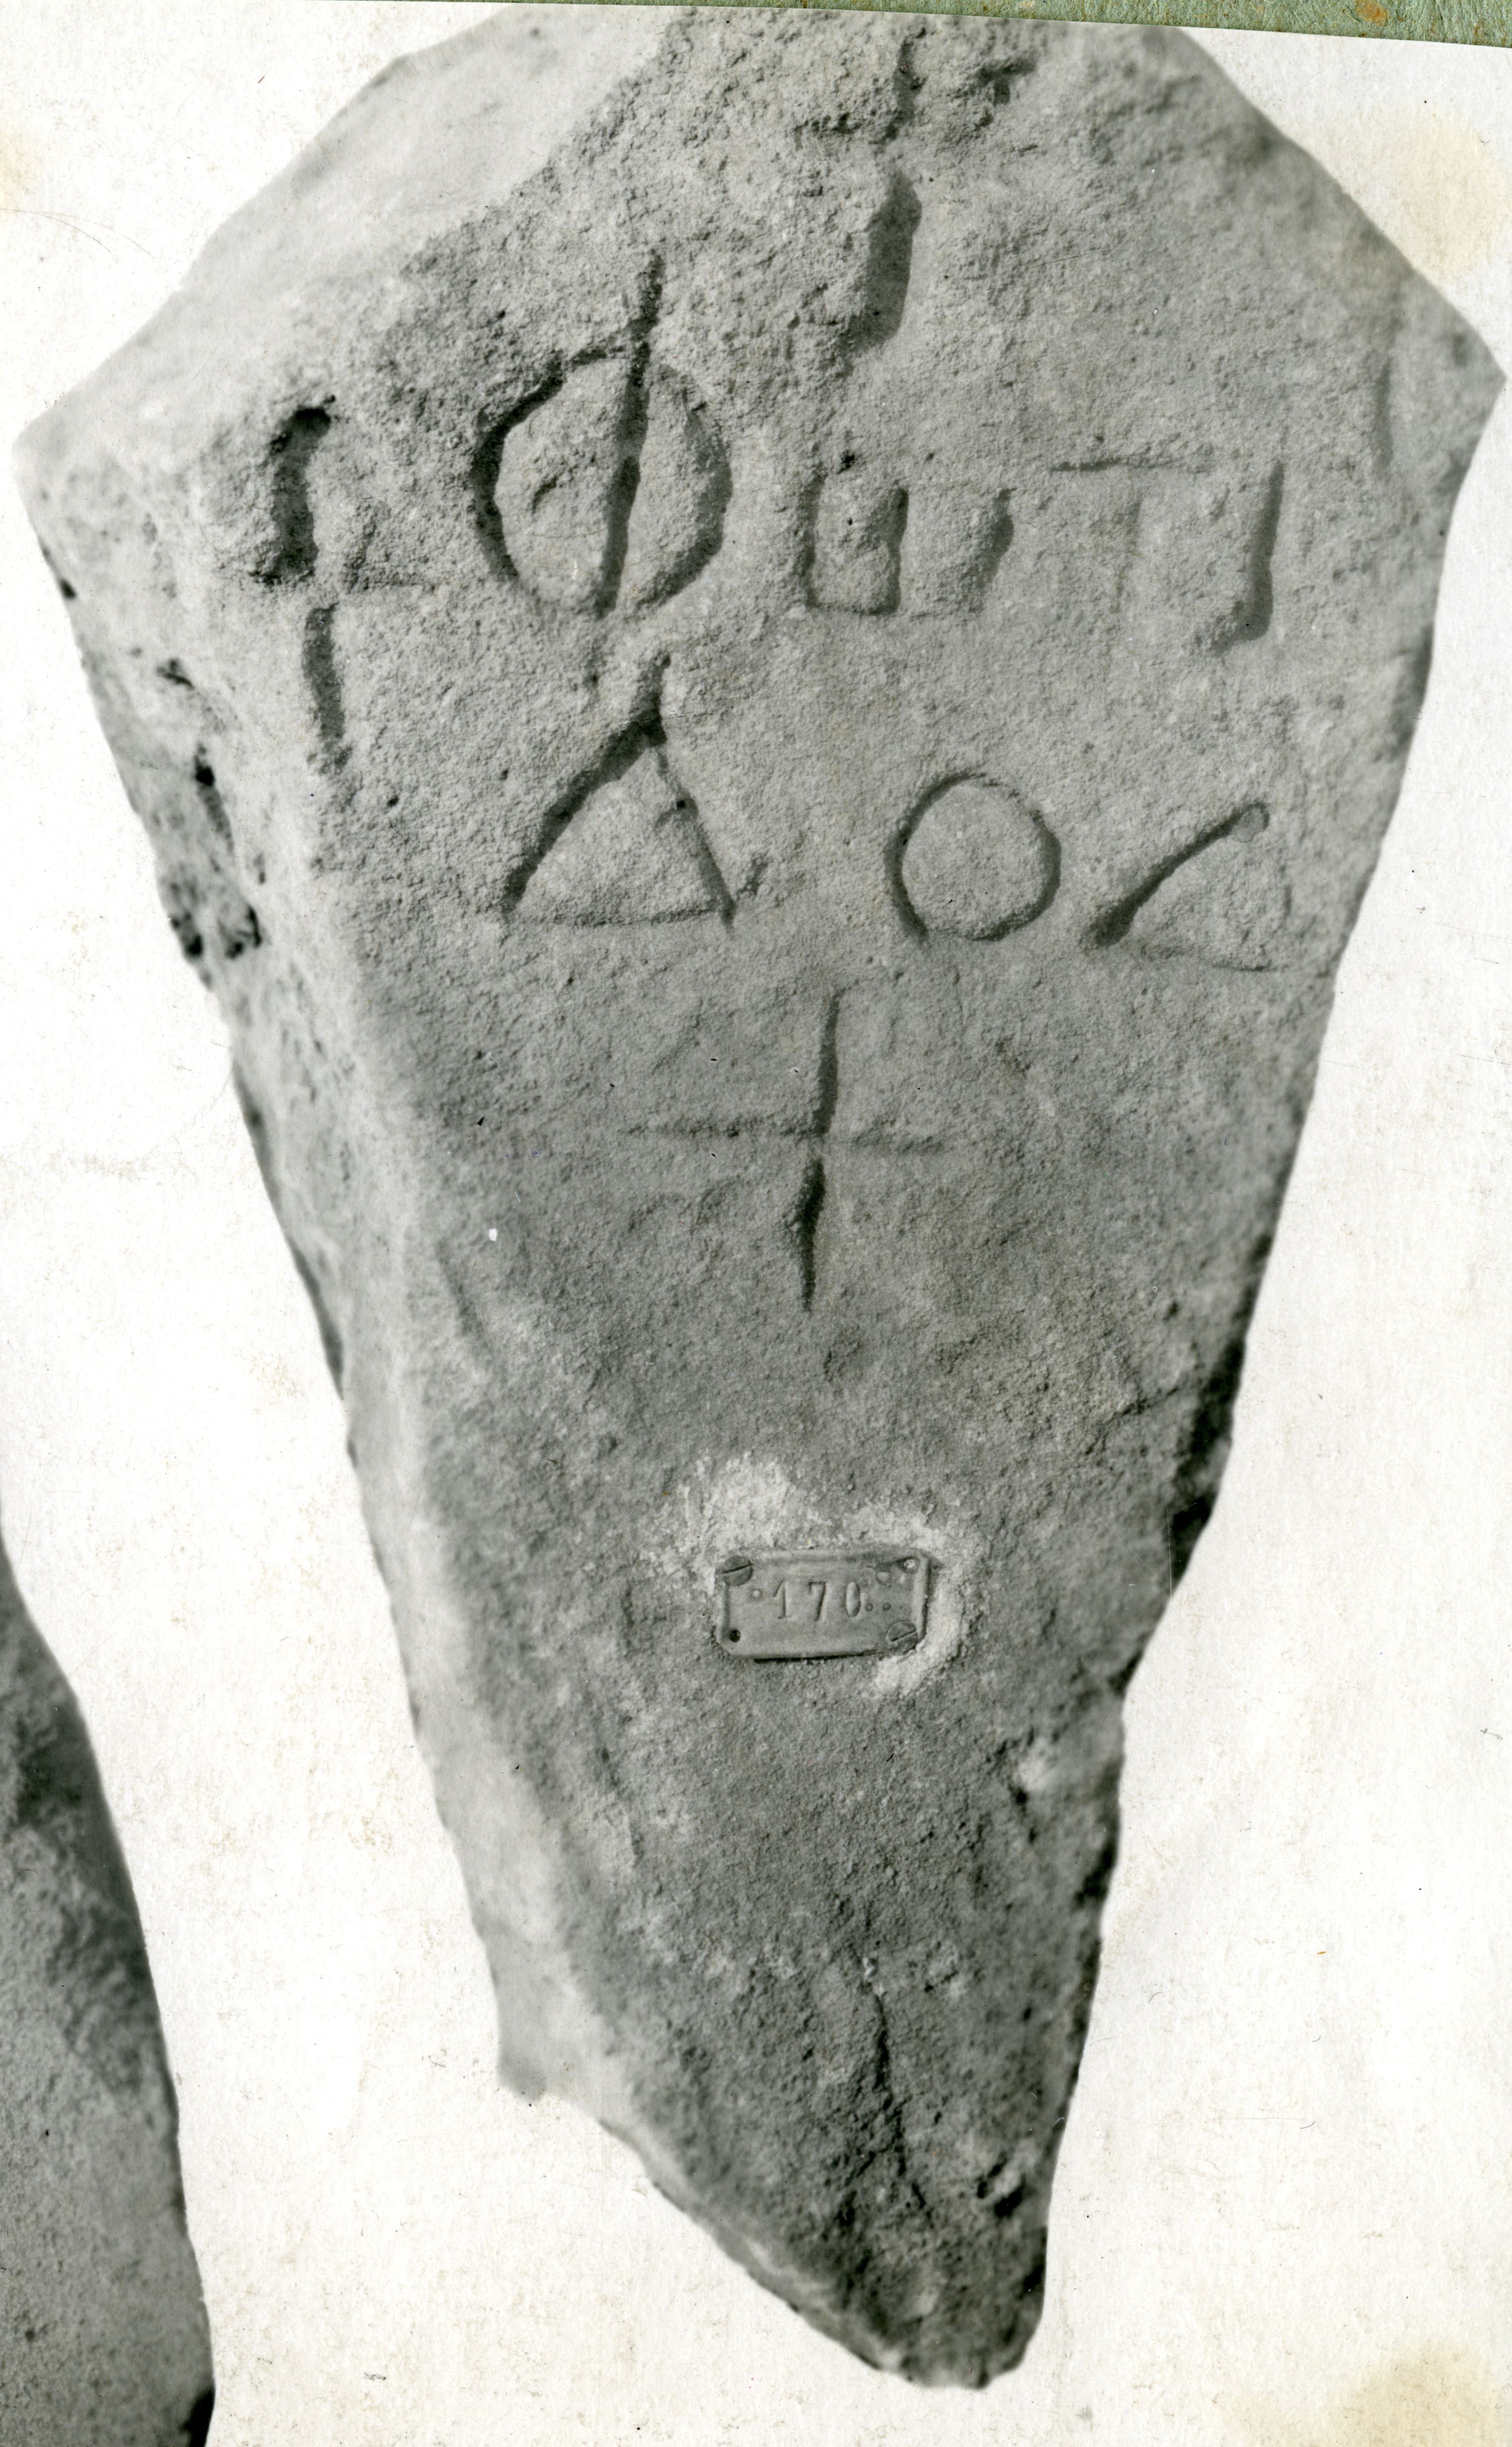 + ΦωΤΙ
ΔΟΔ
+
170